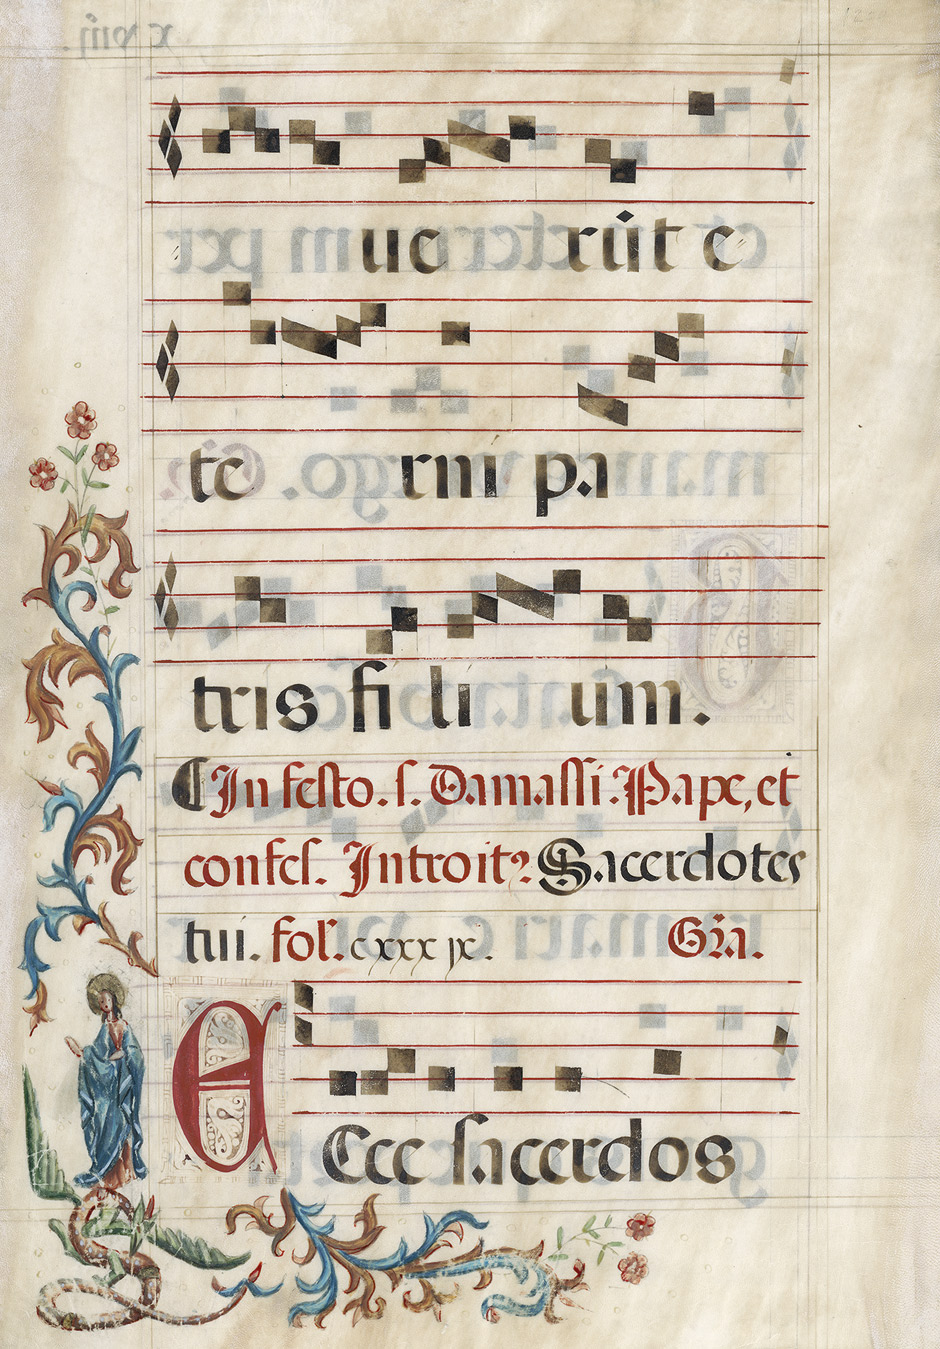 ue rūt e
te rni pa
tris fi li um.
In festo. s. Damassi. Pape, et
confes. Introitꝰ Sacerdotes
tui. fol. cxxxix. Gra.
Ecce sacerdos